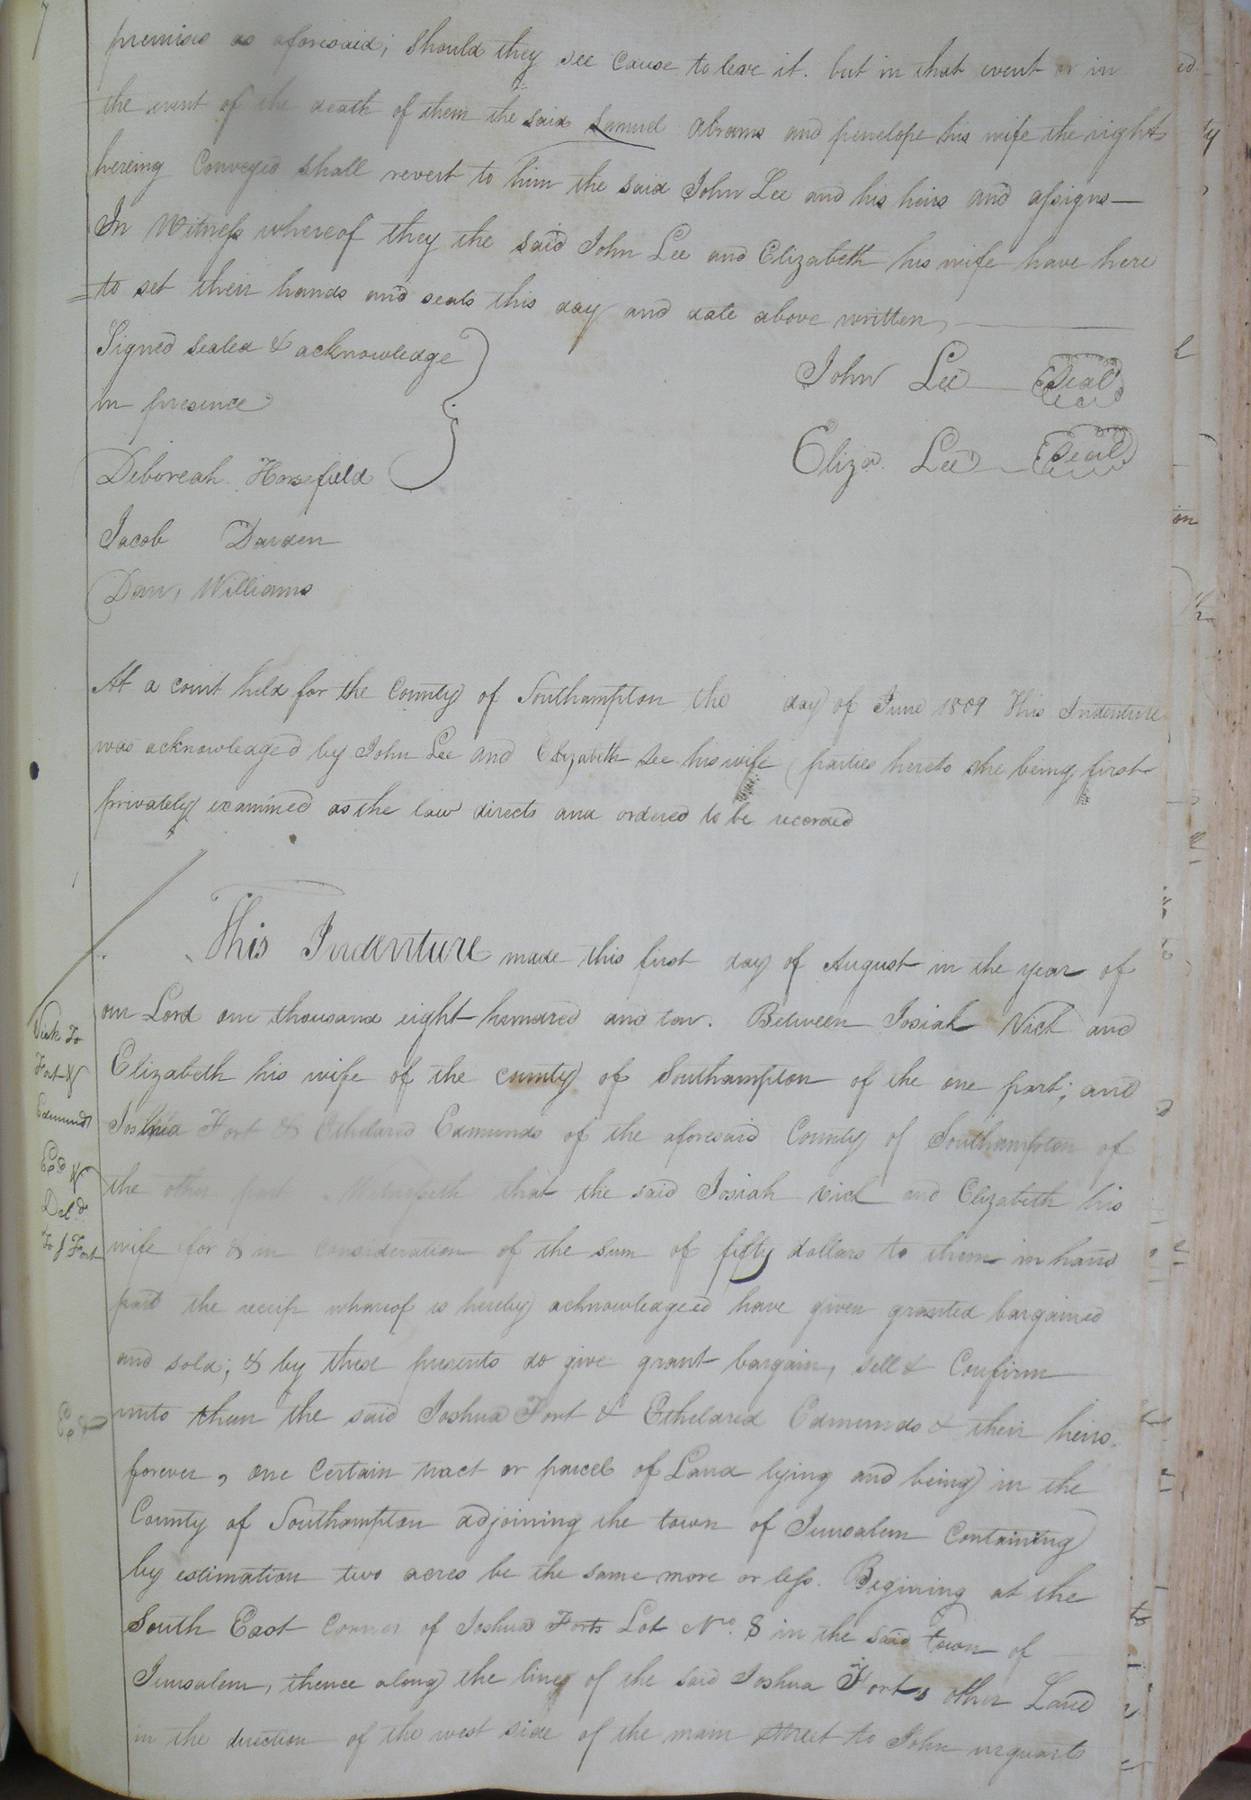 premises as aforesaid; should they see cause to leave it. but in that event or in
the event of the death of them the said Samuel Abrams and penelope his wife the right
hereing Conveyed shall revert to him the said John Lee and his heirs and assigns—
In Witness whereof they the said John Lee and Elizabeth his wife have here
=to set their hands and seals this day and date above written,
Signed sealed & acknowledge
in presence
John Lee Seal
Deboreah Horsefield
Eliza. Lee Seal
Jacob Darden
Dan, Williams
At a court held for the County of Southampton the day of June 1809 This Indenture
was acknowledged by John Lee and Elizabeth Lee his wife parties hereto she being first
privately examined as the law directs and ordered to be recorded
This Indenture made this first day of August in the year of
our Lord one thousand eight hundred and ten. Between Josiah Vick and
Elizabeth his wife of the county of Southampton of the one part; and
Joshua Fort & Etheldred Edmunds of the aforesaid County of Southampton of
the other part Witnesseth that the said Josiah Vick and Elizabeth his
wife for & in consideration of the sum of fifty dollars to them in hand
paid the receip whereof is hereby acknowledgeed have given granted bargained
and sold; & by these presents do give grant bargain, sell & Confirm
unto them the said Joshua Fort & Etheldred Edmunds & their heirs
forever, one Certain tract or parcel of Land lying and being in the
County of Southampton adjoining the town of Jerusalem Containing
by estimation two acres be the same more or less. Begining at the
South East Corner of Joshua Forts Lot No. 8 in the said town of
Jerusalem, thence along the line of the said Joshua Forts other Land
in the direction of the west side of the main street to John urquarts
Vick To
Fort &
Edmunds
Exd &
Deld
To J Fort
Exd